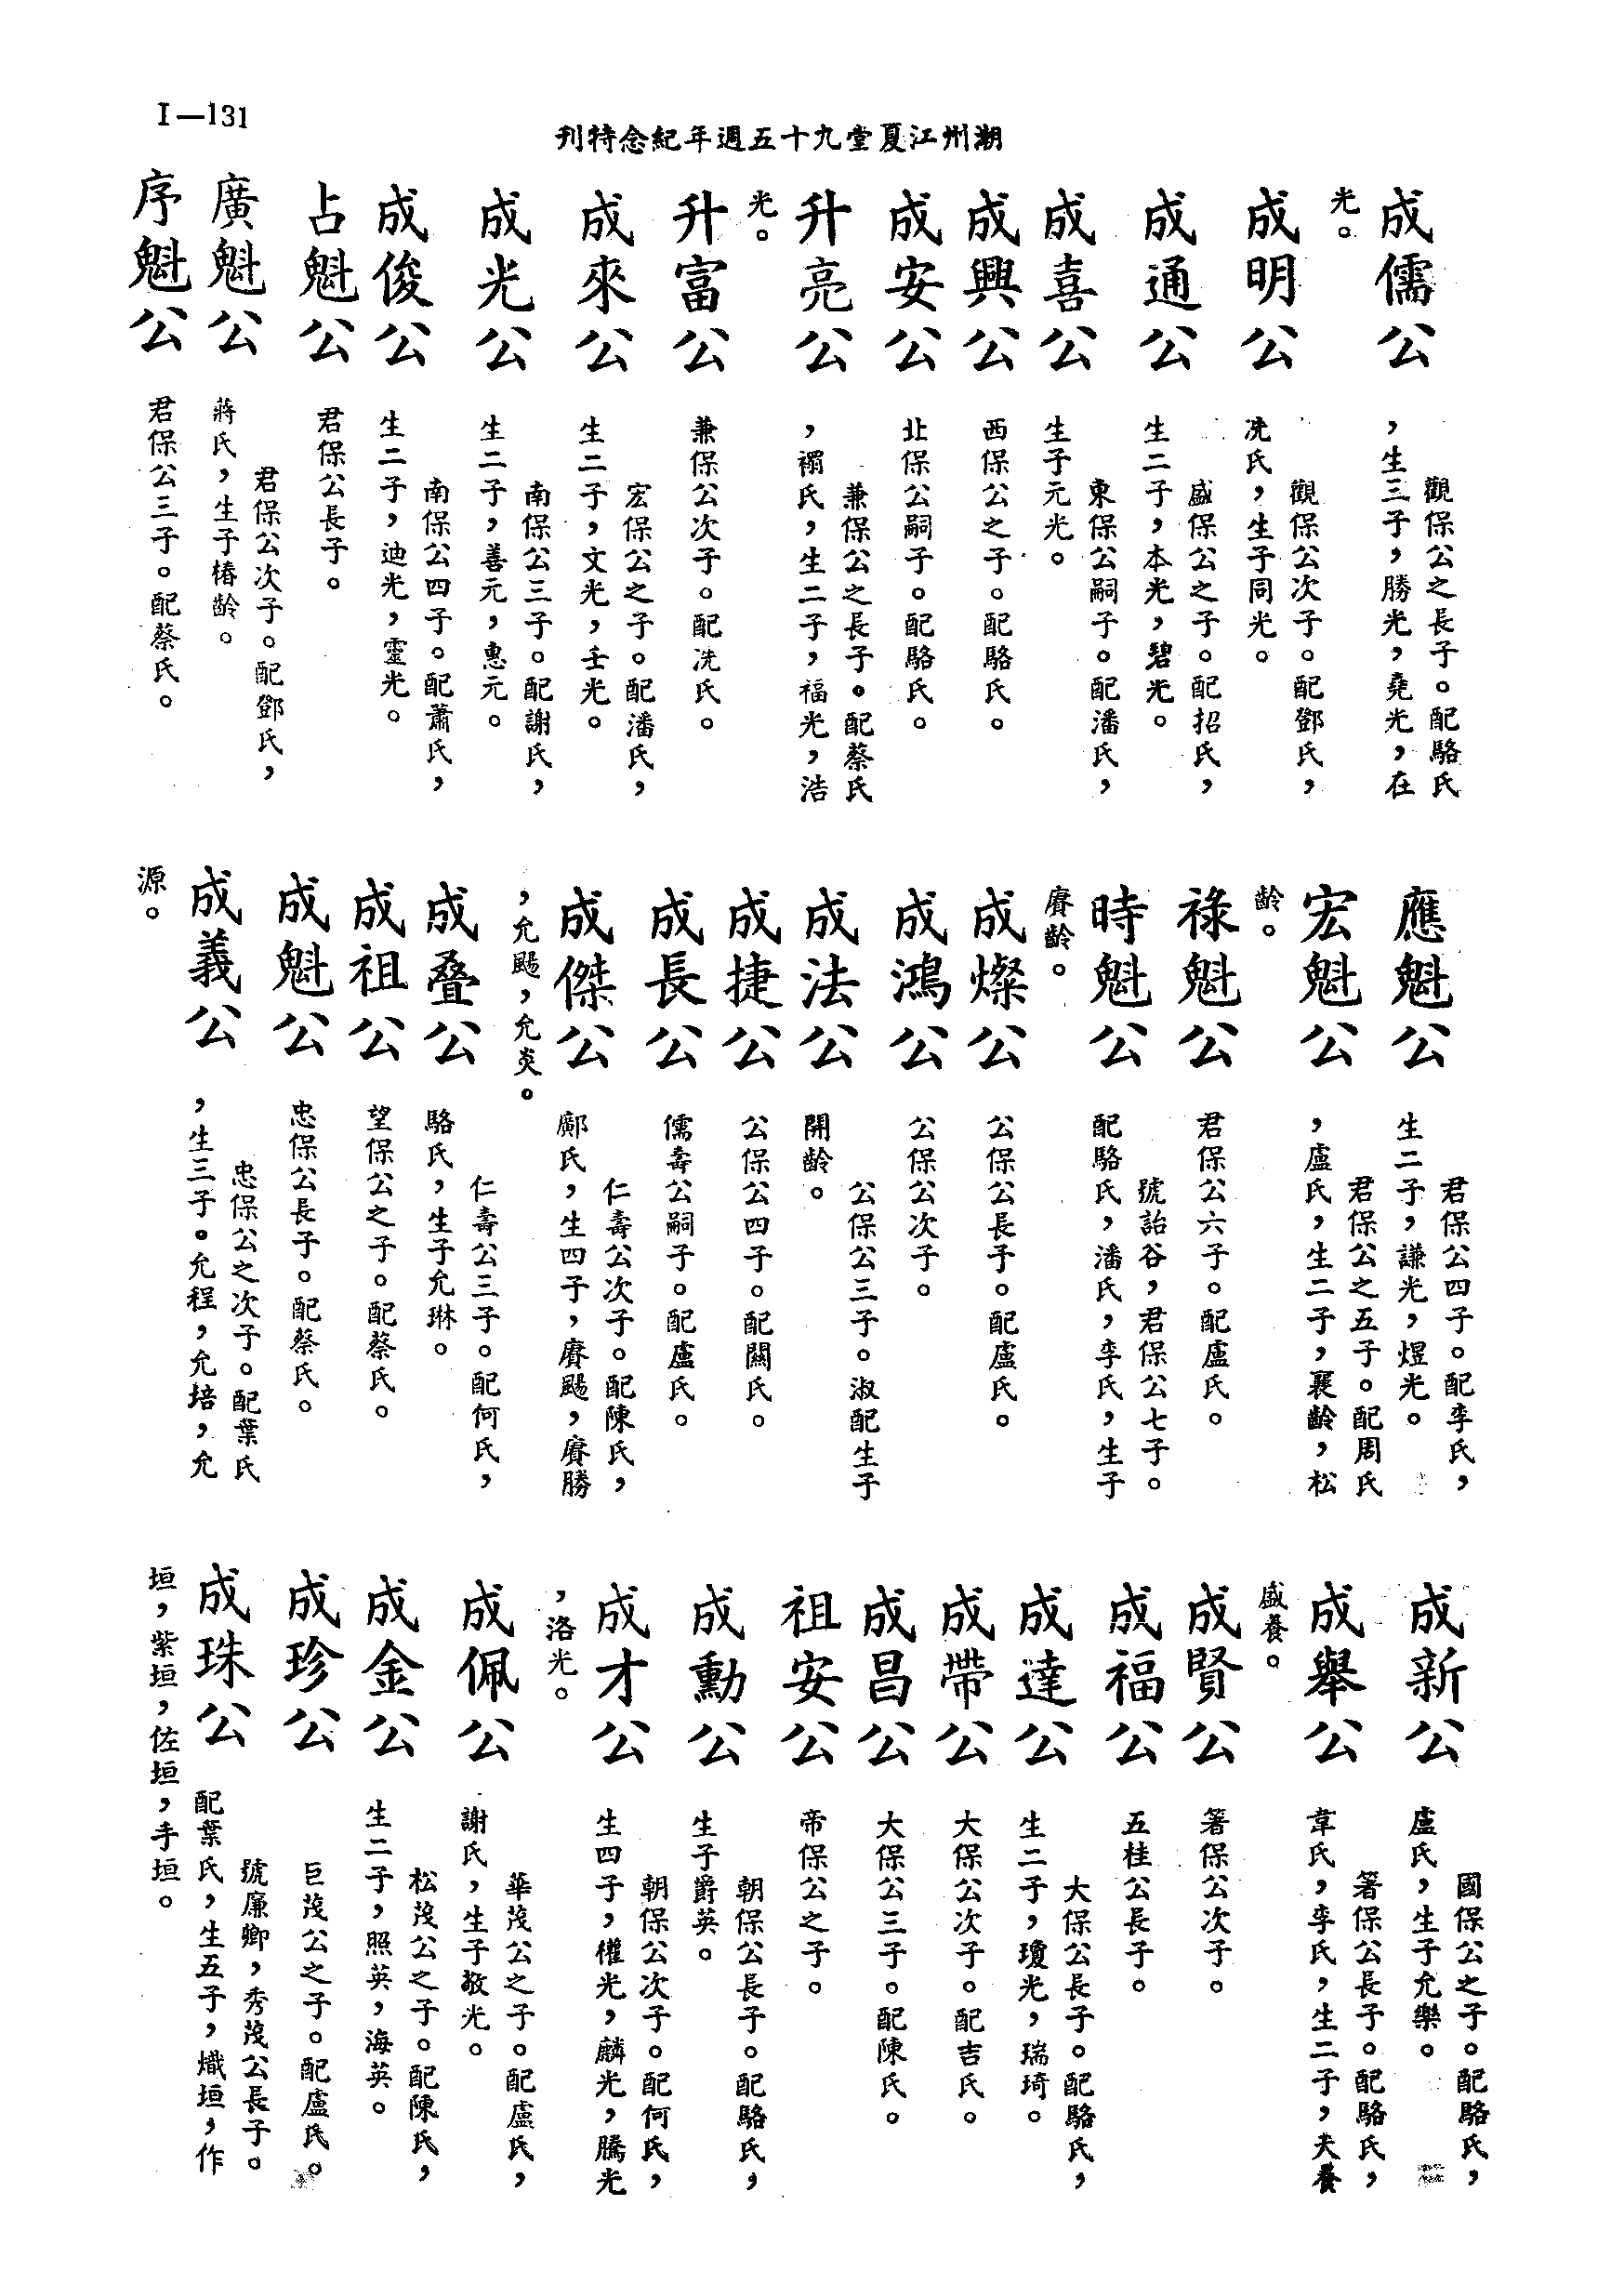 I—131
潮州江夏堂九十五週年紀念特刊
成儒公
觀保公之長子。配駱氏
，生三子，勝光，堯光，在
光。
成明公
觀保公次子。配鄧氏，
冼氏，生子同光。
成通公
盛保公之子。配招氏，
生二子，本光，碧光。
成喜公
東保公嗣子。配潘氏，
生子元光。
成興公
西保公之子。配駱氏。
成安公
北保公嗣子。配駱氏。
升亮公
兼保公之長子。配蔡氏
，禤氏，生二子，福光，浩
光。
升富公
兼保公次子。配冼氏。
成來公
宏保公之子。配潘氏，
生二子，文光，壬光。
成光公
南保公三子。配謝氏，
生二子，善元，惠元。
成俊公
南保公四子。配蕭氏，
生二子，迪光，靈光。
占魁公
君保公長子。
廣魁公
君保公次子。配鄧氏，
蔣氏，生子椿齡。
序魁公
君保公三子。配蔡氏。
應魁公
君保公四子。配李氏，
生二子，謙光，煜光。
宏魁公
君保公之五子。配周氏
，盧氏，生二子，襄齡，松
齡。
祿魁公
君保公六子。配盧氏。
時魁公
號詒谷，君保公七子。
配駱氏，潘氏，李氏，生子
賡齡。
成燦公
公保公長子。配盧氏。
成鴻公
公保公次子。
成法公
公保公三子。淑配生子
開齡。
成捷公
公保公四子。配關氏。
成長公
儒壽公嗣子。配盧氏。
成傑公
仁壽公次子。配陳氏，
鄺氏，生四子，賡颺，賡勝
，允颺，允炎。
成叠公
仁壽公三子。配何氏，
駱氏，生子允琳。
成祖公
望保公之子。配蔡氏。
成魁公
忠保公長子。配蔡氏。
成義公
忠保公之次子。配葉氏
，生三子。允程，允培，允
源。
成新公
國保公之子。配駱氏，
盧氏，生子允樂。
成舉公
箸保公長子。配駱氏，
韋氏，李氏，生二子，夫養
盛養。
成賢公
箸保公次子。
成福公
五桂公長子。
成達公
大保公長子。配駱氏，
生二子，瓊光，瑞琦。
成帶公
大保公次子。配吉氏。
成昌公
大保公三子。配陳氏。
祖安公
帝保公之子。
成勳公
朝保公長子。配駱氏，
生子爵英。
成才公
朝保公次子。配何氏，
生四子，權光，麟光，騰光
，洛光。
成佩公
華茂公之子。配盧氏，
謝氏，生子敬光。
成金公
松茂公之子。配陳氏，
生二子，照英，海英。
成珍公
巨茂公之子。配盧氏。
成珠公
號廉卿，秀茂公長子。
配葉氏，生五子，熾垣，作
垣，紫垣，佐垣，手垣。